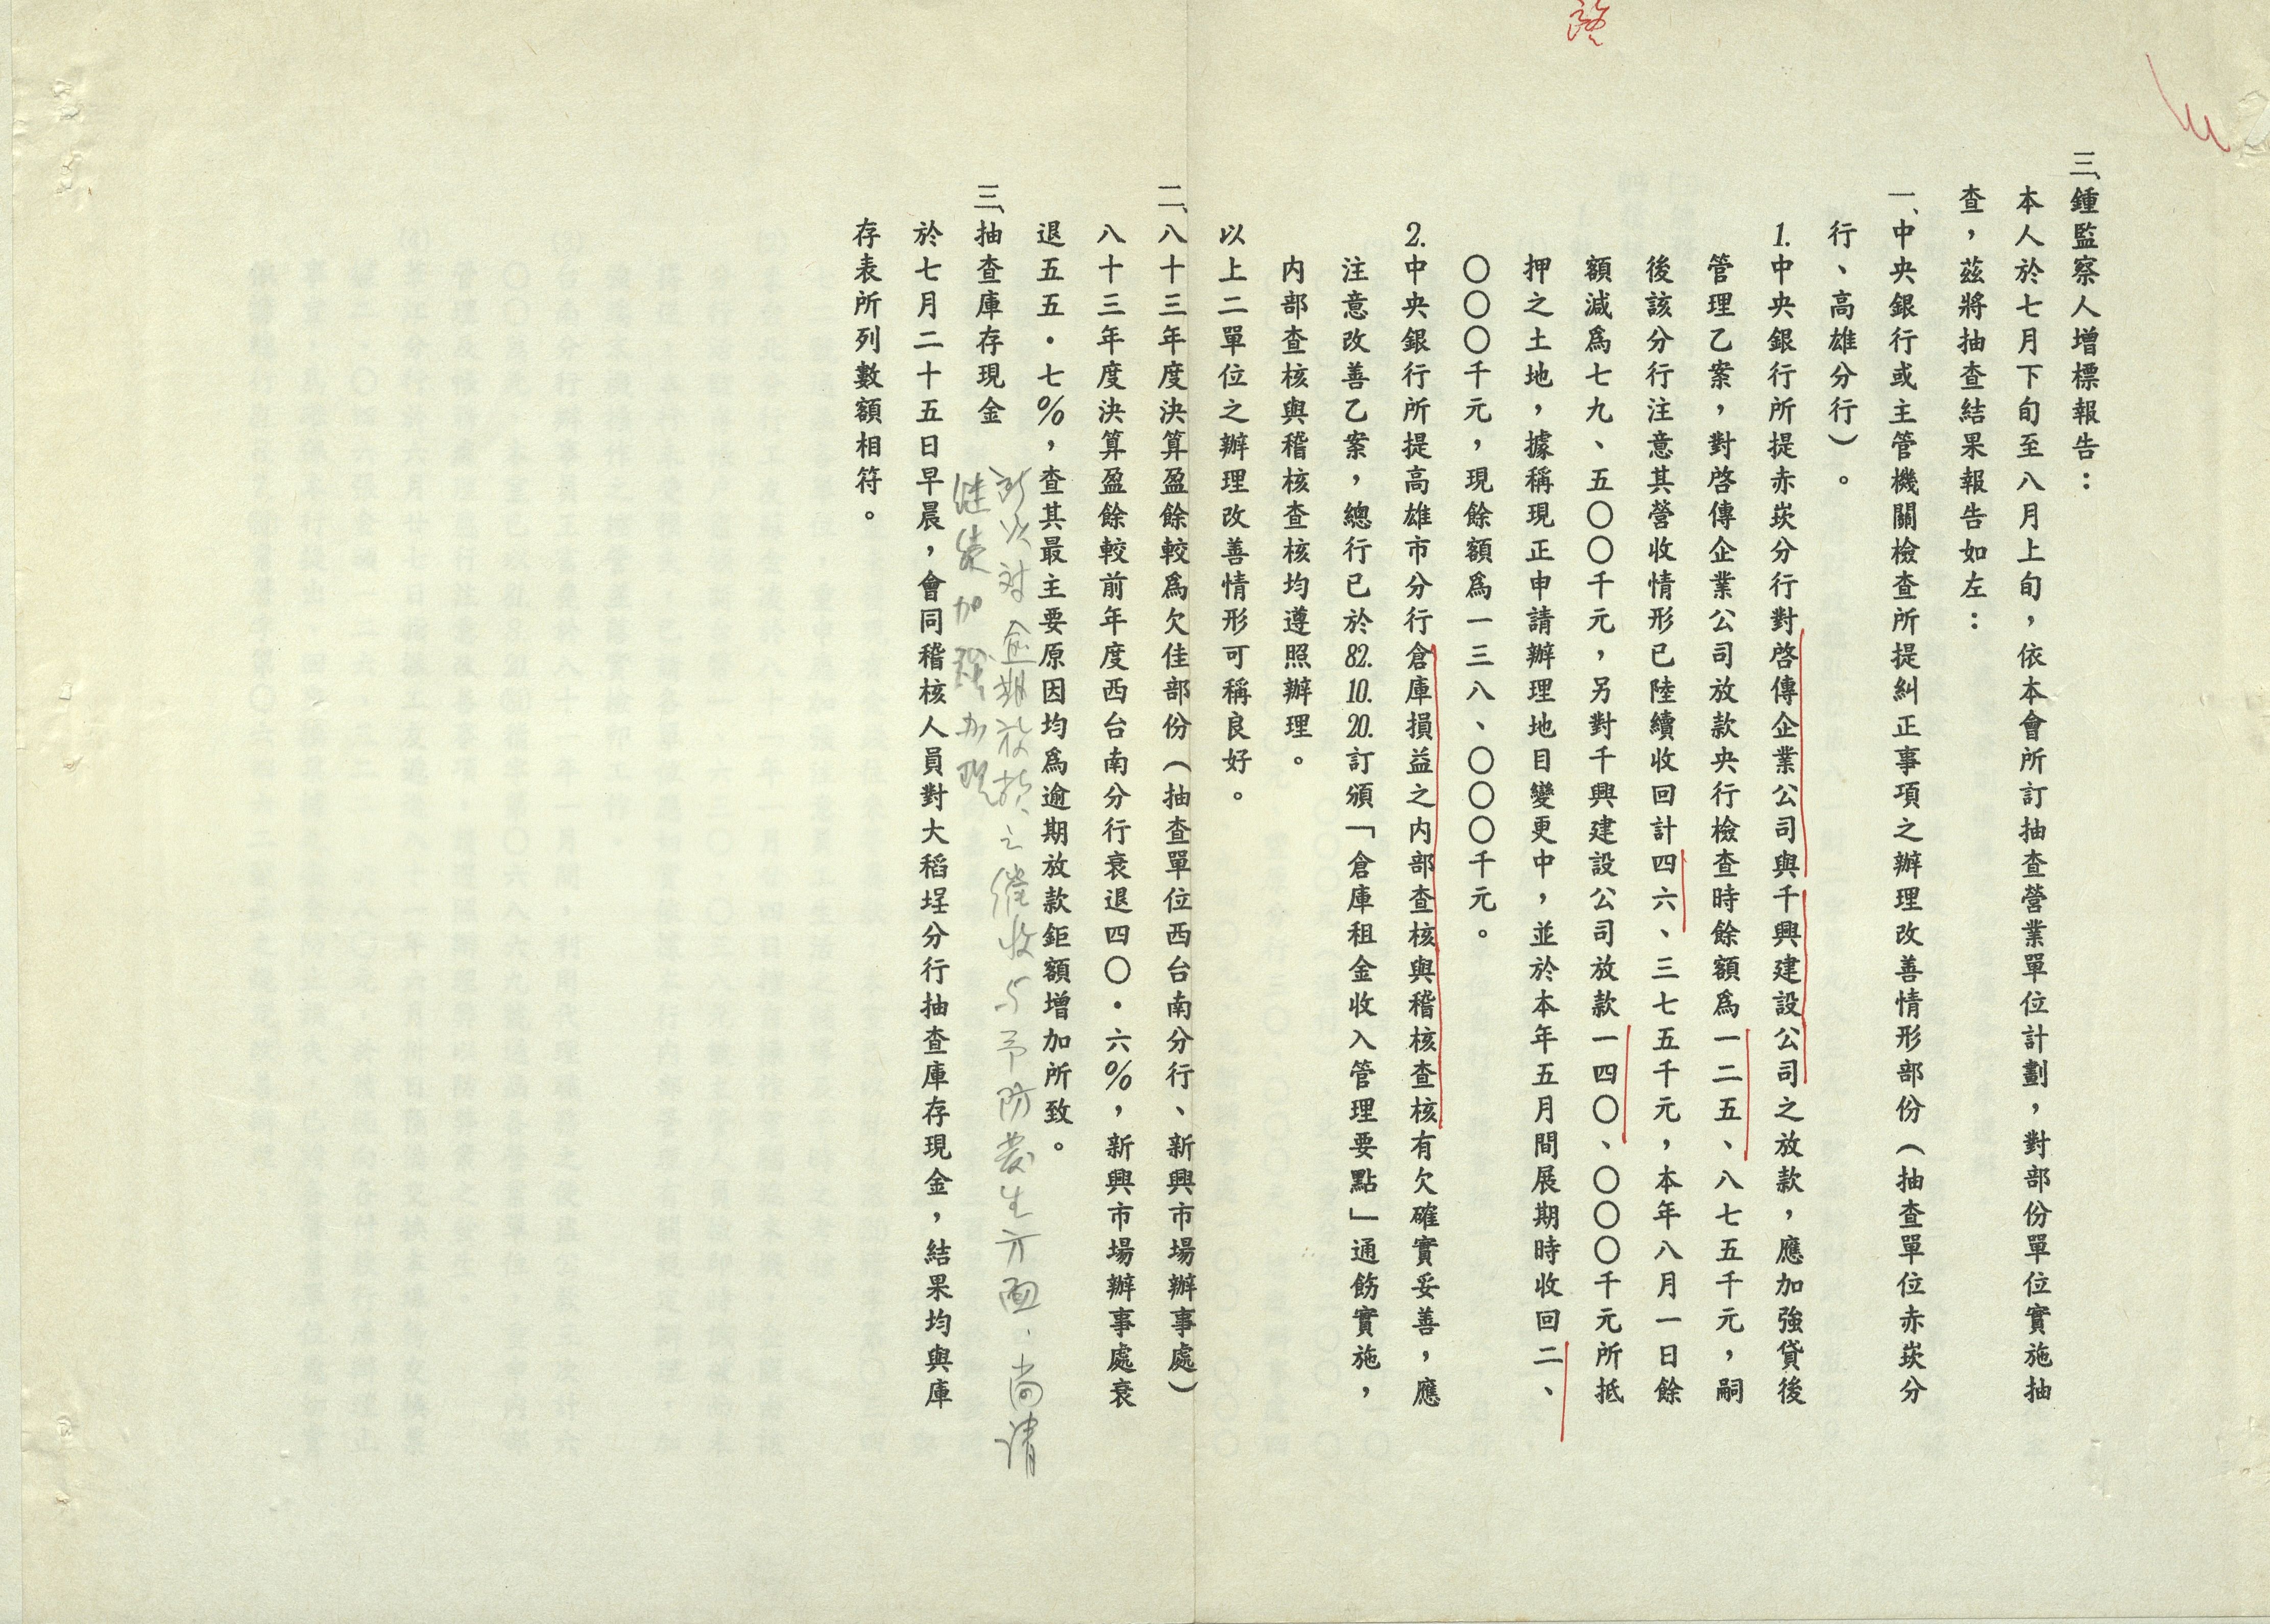 三、鍾監察人增標報告：
本人於七月下旬至八月上旬，依本會所訂抽查營業單位計劃，對部份單位實施抽
查，茲將抽查結果報告如左：
一、中央銀行或主管機關檢查所提糾正事項之辦理改善情形部份（抽查單位赤崁分
行、高雄分行）。
1.中央銀行所提赤崁分行對啓傳企業公司與千興建設公司之放款，應加強貸後
管理乙案，對啓傳企業公司放款央行檢查時餘額爲一二五、八七五千元，嗣
後該分行注意其營收情形已陸續收回計四六、三七五千元，本年八月一日餘
額減爲七九、五〇〇千元，另對千興建設公司放款一四〇、〇〇〇千元所抵
押之土地，據稱現正申請辦理地目變更中，並於本年五月間展期時收回二、
〇〇〇千元，現餘額爲一三八、〇〇〇千元。
2.中央銀行所提高雄市分行倉庫損益之內部查核與稽核查核有欠確實妥善，應
注意改善乙案，總行已於82.10.20.訂頒「倉庫租金收入管理要點」通飭實施，
內部查核與稽核查核均遵照辦理。
以上二單位之辦理改善情形可稱良好。
二、八十三年度決算盈餘較爲欠佳部份（抽查單位西台南分行、新興市場辦事處）
八十三年度決算盈餘較前年度西台南分行衰退四〇・六%，新興市場辦事處衰
退五五・七%，查其最主要原因均爲逾期放款鉅額增加所致。
所以對逾期放款之催收與予防發生方面、尚請
繼續加強办理
三、抽查庫存現金
於七月二十五日早晨，會同稽核人員對大稻埕分行抽查庫存現金，結果均與庫
存表所列數額相符。